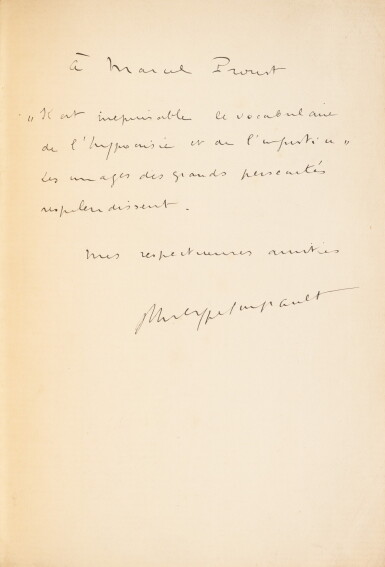 à Marcel Proust
"Il est inépuisable le vocabulaire
de l'hypocrisie et de l'injustice"
Les images des grands persécutés
resplendissent.
Mes respectueuses amitiés
Philippe Soupault